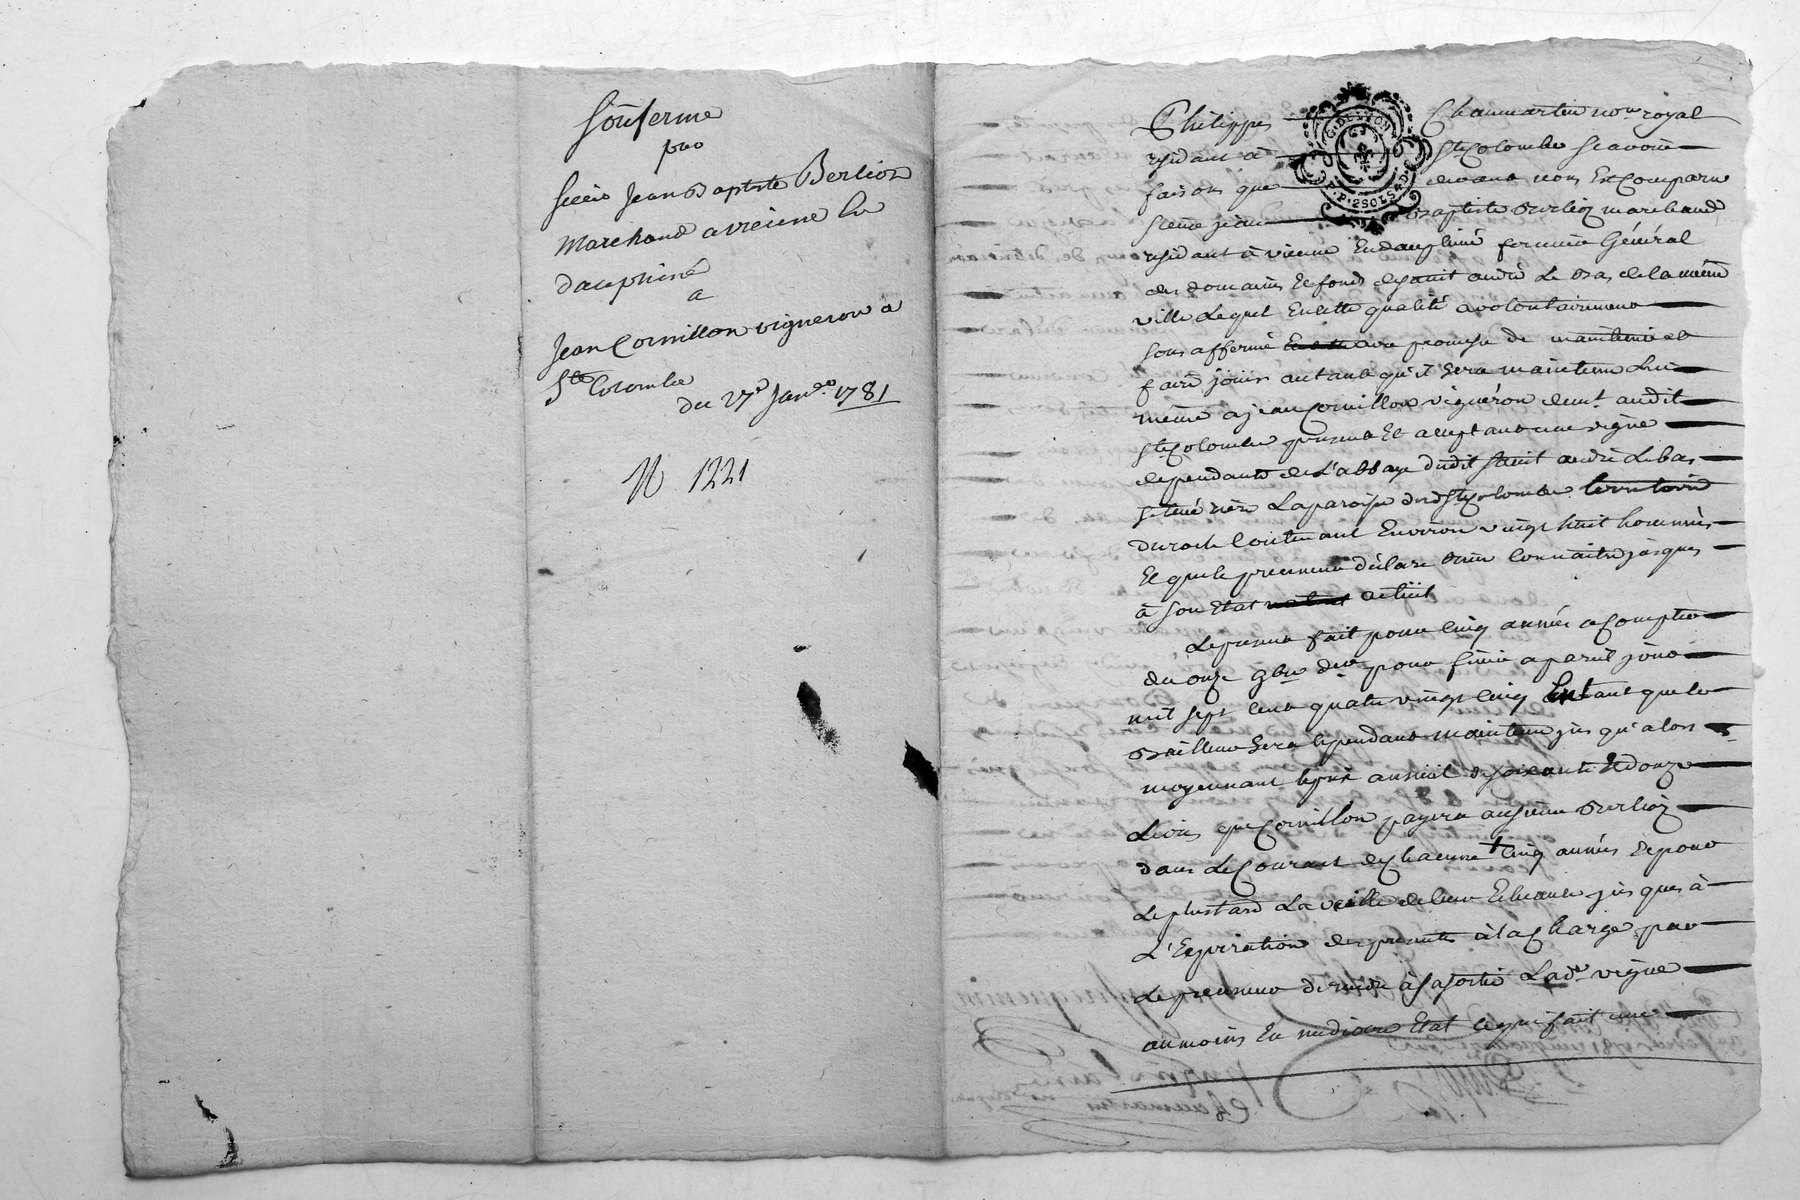 Sousferme
par
Sieur Jean Baptiste Berlioz
Marchand a vienne En
dauphiné
a
Jean Cornillon vigneron a
Ste Colombe
du 27e Janer 1781
N 1221
Philippe Chaumartin nore royal
residant à Ste Colombe scavoir
faisons que devant nous Est Comparu
sieur jean Baptiste Berlioz marchand
residant à vienne En dauphiné fermier Général
des domaines et fonds de saint andré Le bas de la même
ville Lequel En cette qualité a volontairement
sous affermé avec promesse de maintenir et
faire jouir autant qu'il sera maintenu Lui
même a jean Cornillon vigneron demt audit
Ste Colombe present Et acceptant une vigne
dependante de L'abbaye dudit saint andré Le bas
située riere La paroisse dud Ste Colombe territoire
du roch Contenant Environ vingt huit hommées
Et que le preneur déclare bien connaitre jusques
à son Etat actuel
Le present fait pour cinq années a Compter
du onze 9bre der pour finir a pareil jour
mil sept cent quatre vingt cinq En tant que le
Bailleur sera cependant maintenu jus qu'alors
moyennant le prix annuel de soixante Et douze
Livres que Cornillon payera au sieur Berlioz
dans Le Courant de chacune cinq années Et pour
Le plus tard La veille de leur Echeance jus ques à
L'Expiration des presentes à la Charge par
Le preneur de rendre à sa sortie Lade vigne
au moins En mediocre Etat ce qui fait une
G. DE LYON
P.P. 2 SOLS 4 D.